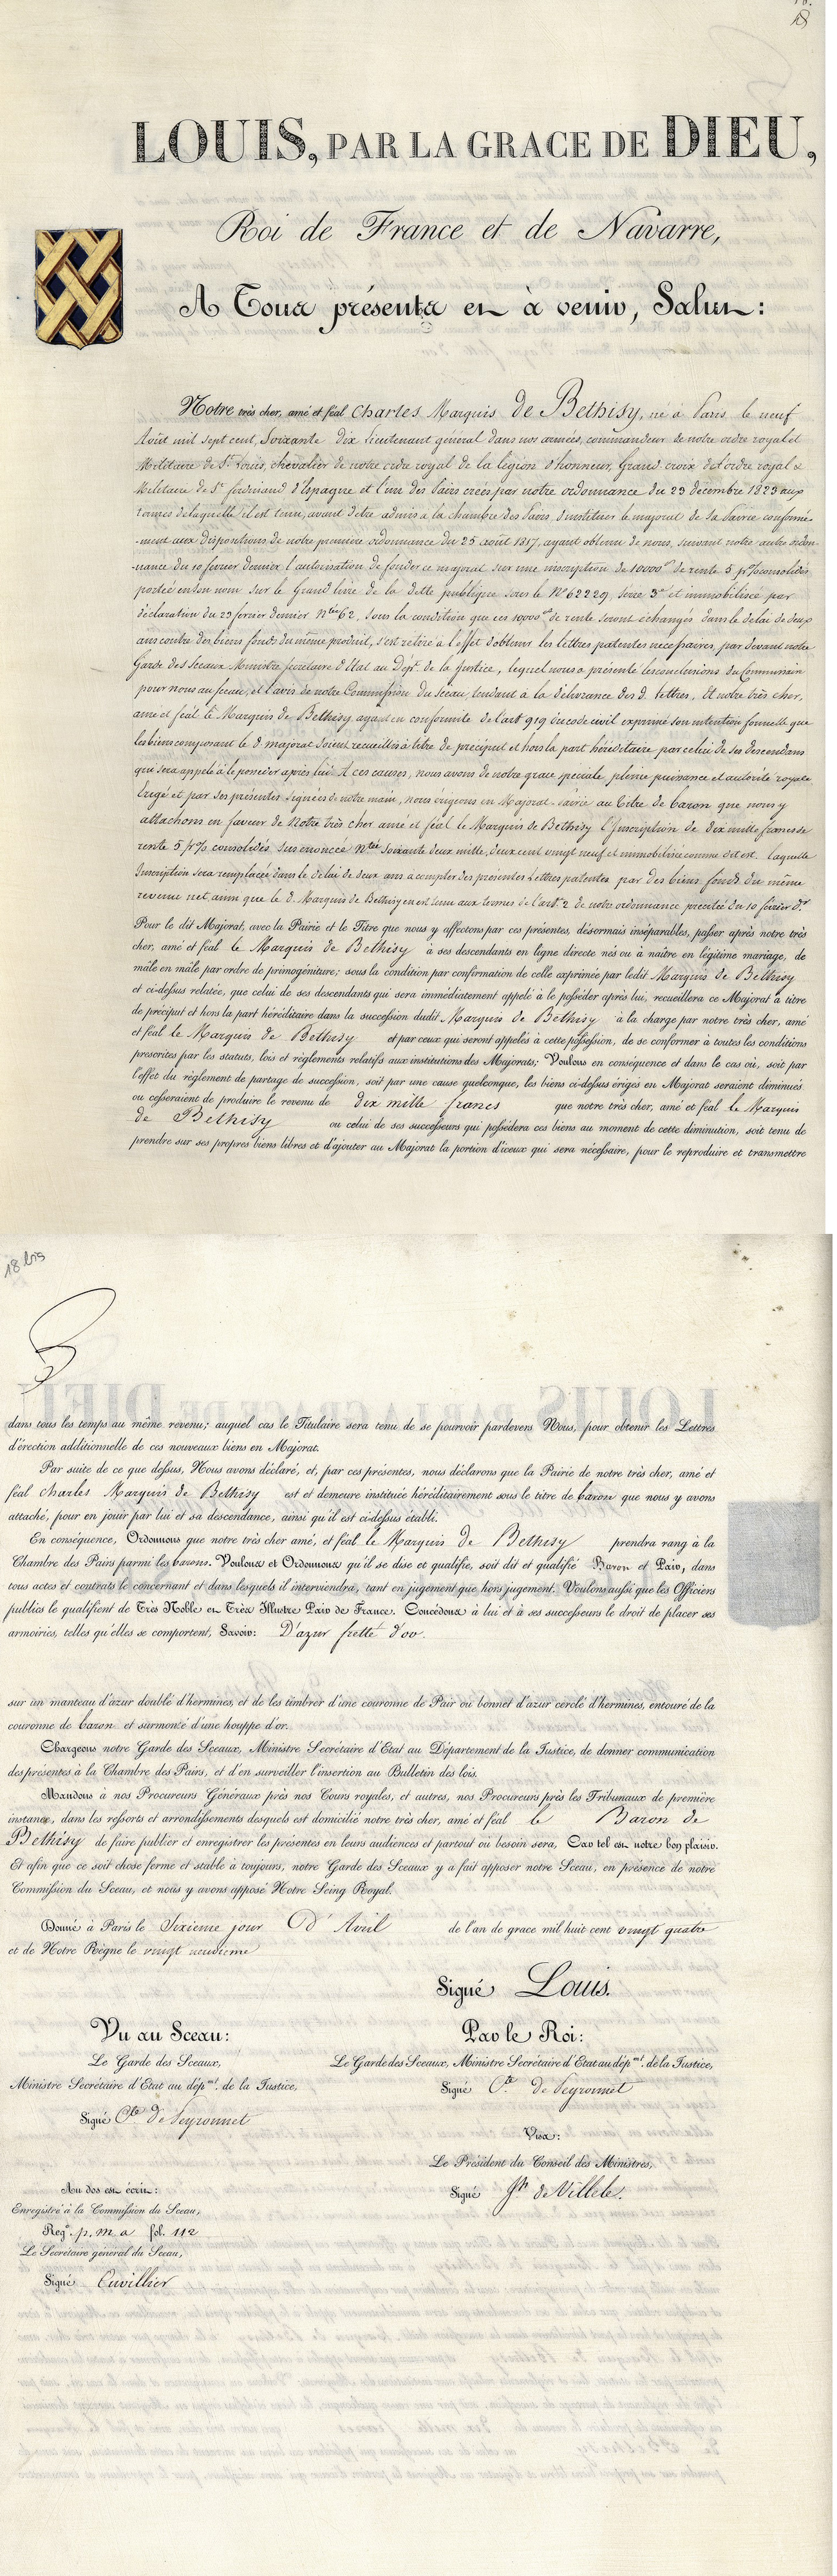 18
LOUIS, PAR LA GRACE DE DIEU,
Roi de France et de Navarre,
A Tous présents et à venir, Salut:
Notre très cher, amé et féal Charles Marquis de Bethisy, né à Paris le neuf
Août mil sept cent, Soixante dix lieutenant général dans nos armées, commandeur de notre ordre royal et
Militaire de St Louis, chevalier de notre ordre royal de la légion d'honneur, Grand croix de l'ordre royal &
Militaire de St ferdinand d'Espagne et l'un des Pairs créés par notre ordonnance du 23 décembre 1823 aux
termes de laquelle il est tenu, avant d'etre admis a la chambre des Pairs d'instituer le majorat de sa Pairie conformé-
-ment aux dispositions de notre première ordonnance du 25 août 1817, ayant obtenu de nous, suivant notre autre ordon-
-nance du 10 février dernier l'autorisation de fonder ce majorat sur une inscription de 10000 de rente 5 pr% consolidés
portée en son nom sur le Grand livre de la dette publique sous le No 62229, serie 3e et immobilisée par
déclaration du 23 fevrier dernier No 62, sous la condition que ces 10000 de rente seront échangés dans le délai de deux
ans contre des biens fonds du même produit, s'est retiré à l'effet d'obtenir les lettres patentes necessaires, par devant notre
Garde des Sceaux Ministre Secrétaire d'Etat au Dept. de la Justice, lequel nous a présenté les conclusions du Commissaire
pour nous au sceau, et l'avis de notre Commission du Sceau, tendant à la délivrance des d. lettres, Et notre très cher,
amé et féal le Marquis de Bethisy ayant en conformité de l'artt 919 du code civil exprimé son intention formelle que
les biens composant le d. majorat soient recueillis à titre de préciput et hors la part héréditaire par celui de ses descendans
qui sera appelé à le posséder après lui. A ces causes, nous avons de notre grace speciale pleine puissance et autorité royale
Erigé et par ces présentes signées de notre main, nous érigeons en Majorat-Pairie au titre de baron que nous y
attachons en faveur de Notre très cher amé et féal le Marquis de Bethisy l'Inscription de dix mille francs de
rente 5 pr% consolidés sus enoncée No Soixante deux mille, deux cent vingt neuf et immobilisée comme dit est. laquelle
Inscription sera remplacée dans le délai de deux ans a compter des presentes Lettres patentes par des biens fonds du même
revenu net, ainsi que le d. Marquis de Bethisy en est tenu aux termes de l'art. 2 de notre ordonnance précitée du 10 février dr
Pour le dit Majorat, avec la Pairie et le Titre que nous y affectons par ces présentes, désormais inséparables, passer après notre très
cher, amé et féal le Marquis de Bethisy à ses descendants en ligne directe nés ou à naître en légitime mariage, de
mâle en mâle par ordre de primogéniture; sous la condition par confirmation de celle exprimée par ledit Marquis de Bethisy
et ci-dessus relatée, que celui de ses descendants qui sera immédiatement appelé à le posséder après lui, recueillera ce Majorat à titre
de préciput et hors la part héréditaire dans la succession dudit Marquis de Bethisy à la charge par notre très cher, amé
et féal le Marquis de Bethisy et par ceux qui seront appelés à cette possession, de se conformer à toutes les conditions
prescrites par les statuts, lois et règlements relatifs aux institutions des Majorats; Voulons en conséquence et dans le cas où, soit par
l'effet du règlement de partage de succession, soit par une cause quelconque, les biens ci-dessus érigés en Majorat seraient diminués
ou cesseraient de produire le revenu de dix mille francs que notre très cher, amé et féal le Marquis
de Bethisy ou celui de ses successeurs qui possédera ces biens au moment de cette diminution, soit tenu de
prendre sur ses propres biens libres et d'ajouter au Majorat la portion d'iceux qui sera nécessaire, pour le reproduire et transmettre
18 bis
dans tous les temps au même revenu; auquel cas le Titulaire sera tenu de se pourvoir pardevers Nous, pour obtenir les Lettres
d'érection additionnelle de ces nouveaux biens en Majorat.
Par suite de ce que dessus, Nous avons déclaré, et, par ces présentes, nous déclarons que la Pairie de notre très cher, amé et
féal Charles Marquis de Bethisy est et demeure instituée héréditairement sous le titre de baron que nous y avons
attaché, pour en jouir par lui et sa descendance, ainsi qu'il est ci-dessus établi.
En conséquence, Ordonnons que notre très cher amé, et féal le Marquis de Bethisy prendra rang à la
Chambre des Pairs parmi les barons. Voulons et Ordonnons qu'il se dise et qualifie, soit dit et qualifié Baron et Pair, dans
tous actes et contrats le concernant et dans lesquels il interviendra, tant en jugement que hors jugement. Voulons aussi que les Officiers
publics le qualifient de Très Noble et Très Illustre Pair de France. Concédons à lui et à ses successeurs le droit de placer ses
armoiries, telles qu'elles se comportent, Savoir: D'azur fretté d'or.
sur un manteau d'azur doublé d'hermines, et de les timbrer d'une couronne de Pair ou bonnet d'azur cerclé d'hermines, entouré de la
couronne de baron et surmonté d'une houppe d'or.
Chargeons notre Garde des Sceaux, Ministre Secrétaire d'Etat au Département de la Justice, de donner communication
des présentes à la Chambre des Pairs, et d'en surveiller l'insertion au Bulletin des lois.
Mandons à nos Procureurs Généraux près nos Cours royales, et autres, nos Procureurs près les Tribunaux de première
instance, dans les ressorts et arrondissements desquels est domicilié notre très cher, amé et féal le Baron de
Bethisy de faire publier et enregistrer les présentes en leurs audiences et partout où besoin sera, Car tel est notre bon plaisir.
Et afin que ce soit chose ferme et stable à toujours, notre Garde des Sceaux y a fait apposer notre Sceau, en présence de notre
Commission du Sceau, et nous y avons apposé Notre Seing Royal.
Donné à Paris le Sixieme jour D'Avril de l'an de grace mil huit cent vingt quatre
et de Notre Règne le vingt neuvieme
Signé Louis.
Vu au Sceau:
Le Garde des Sceaux,
Ministre Secrétaire d'Etat au dépmt. de la Justice,
Signé Cte de Peyronnet
Par le Roi:
Le Garde des Sceaux, Ministre Secrétaire d'Etat au dépmt. de la Justice,
Signé Cte de Peyronnet
Visa:
Le Président du Conseil des Ministres,
Signé Jh de Villele.
Au dos est écrit:
Enregistré à la Commission du Sceau,
Rege. p. m. a fol. 112
Le Secrétaire général du Sceau,
Signé Cuvillier